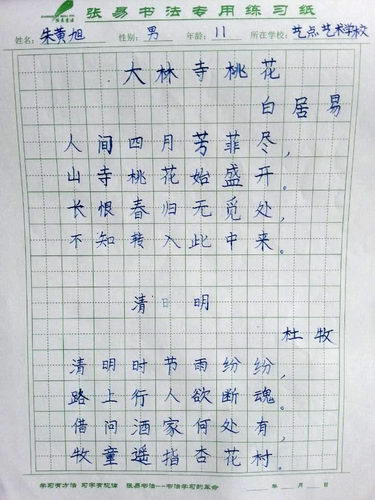 张易书法专用练习纸
姓名：朱黄旭 性别：男 年龄：11 所在学校：艺点艺术学校
大林寺桃花
白居易
人间四月芳菲尽，
山寺桃花始盛开。
长恨春归无觅处，
不知转入此中来。
清明
杜牧
清明时节雨纷纷，
路上行人欲断魂。
借问酒家何处有，
牧童遥指杏花村。
学习有方法 习字有规律 张易书法--书法学习的革命 年 月 日